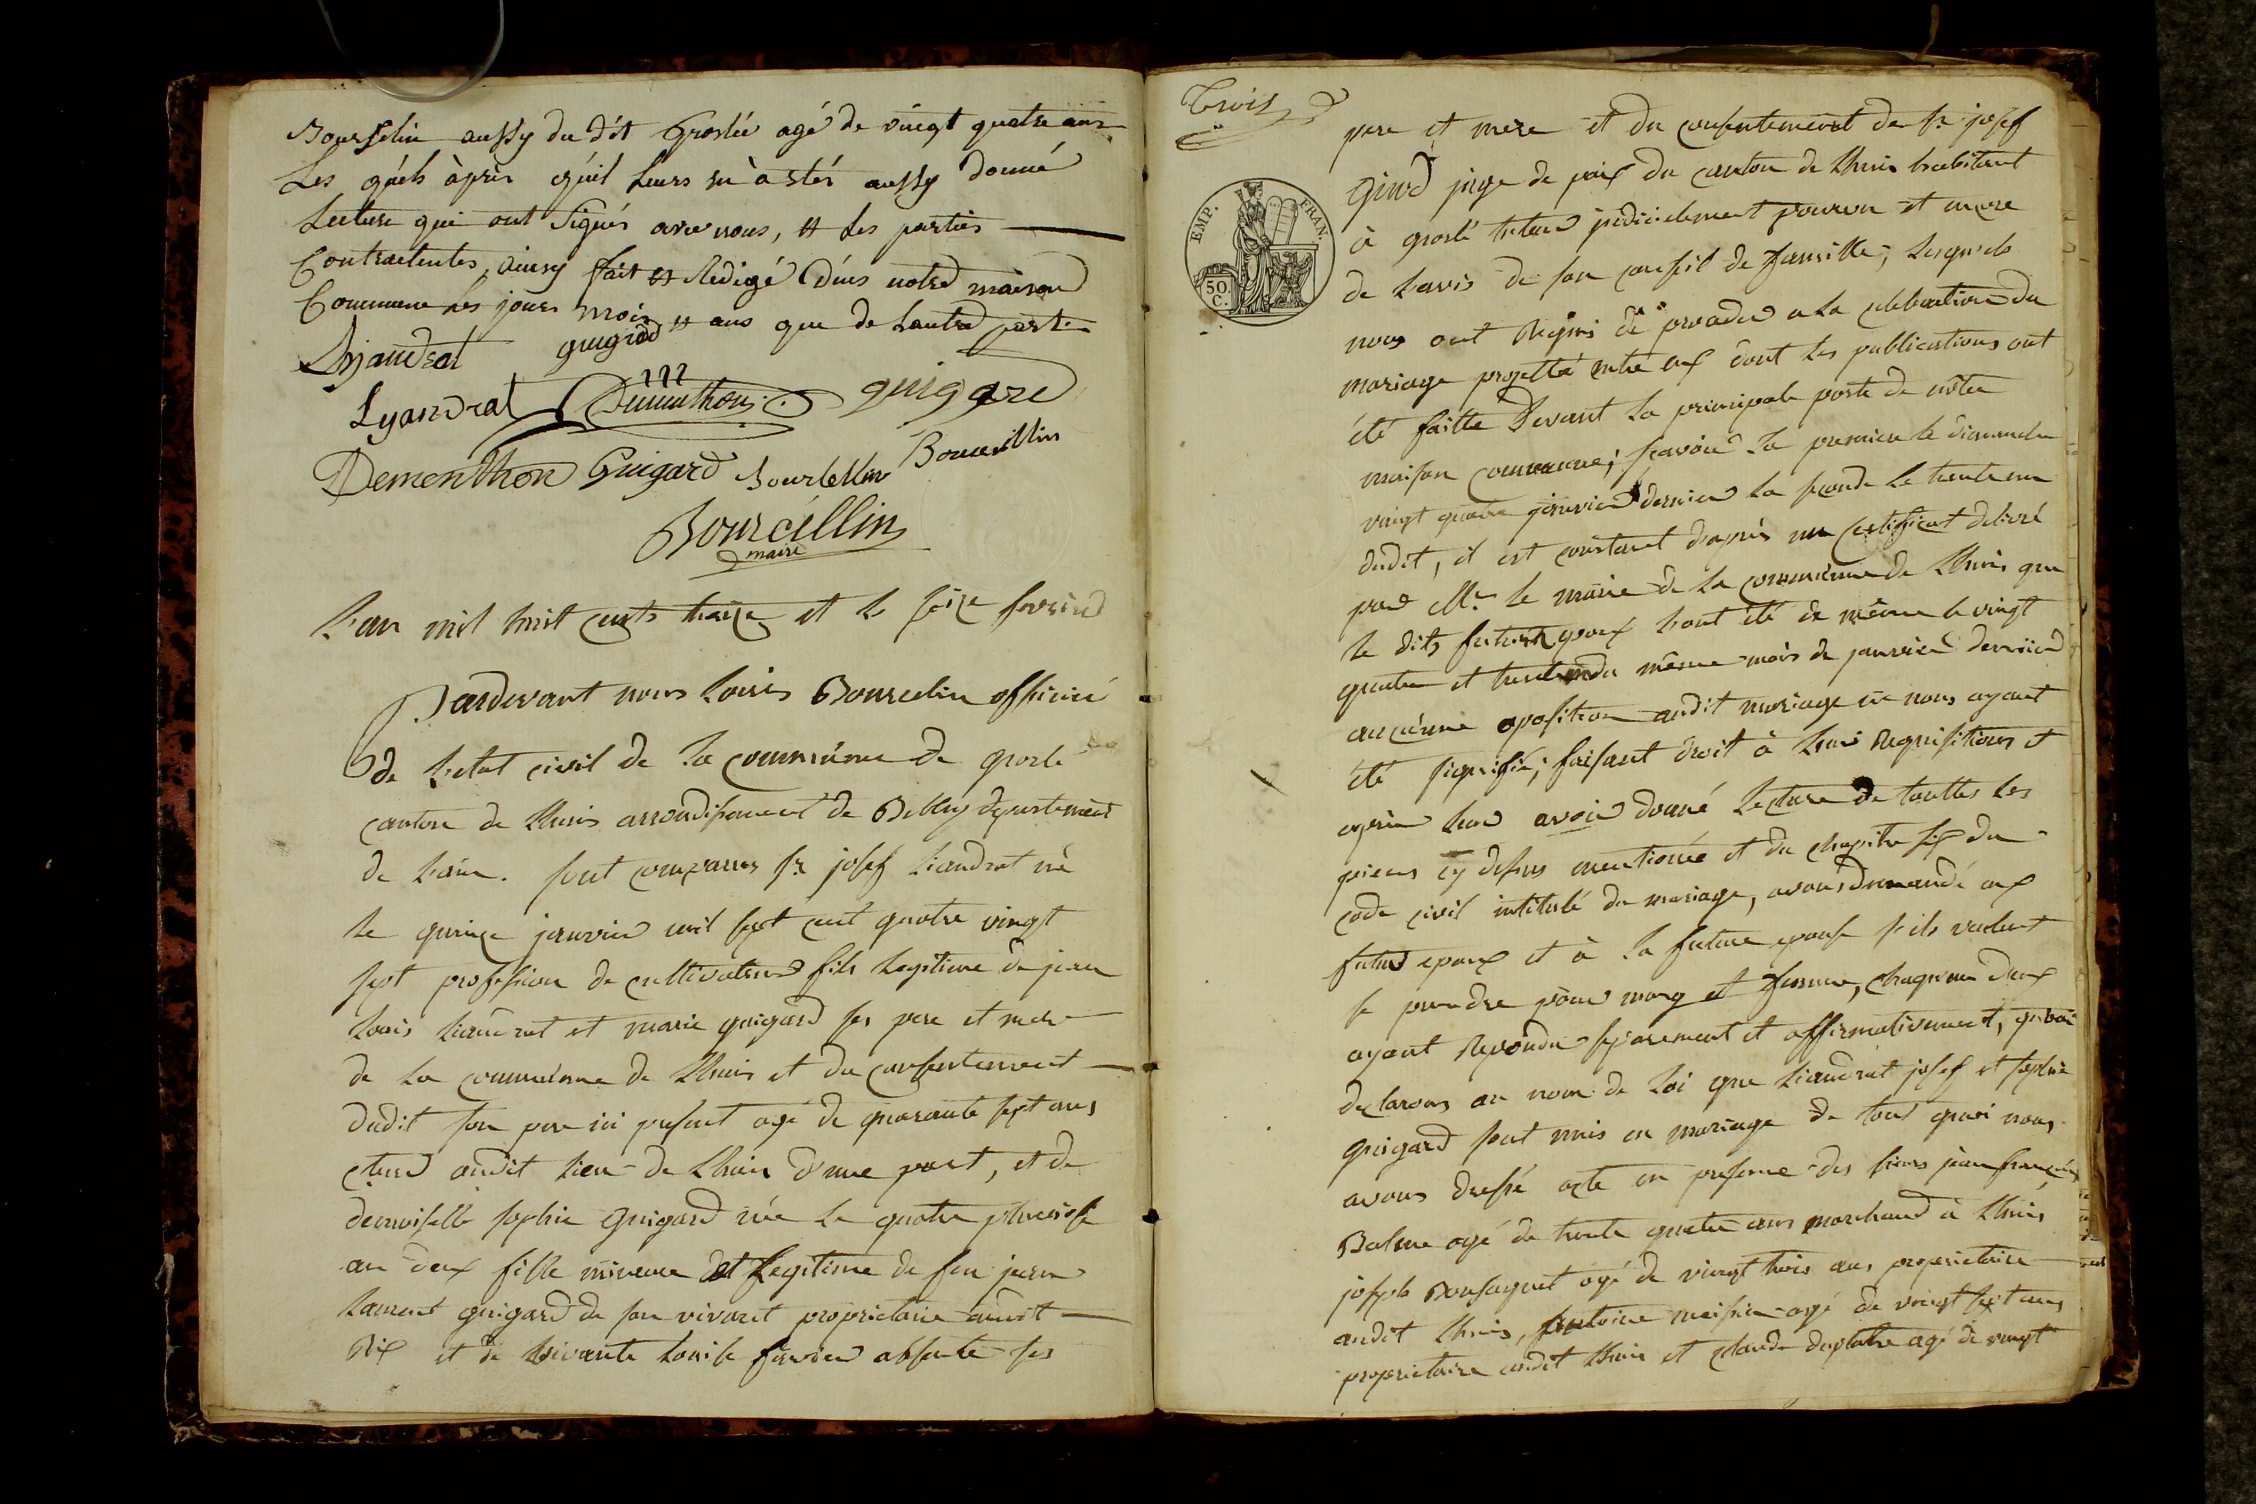 Bourselin aussy du dit Groslée agé de vingt quatre ans
Les quels àprès quil Leurs en à estés aussy Donné
Lecture qui ont Signés avec nous, et Les parties
Contractentes, ainsy fait et Redigé Dans notre maison
Commune Les jours mois et ans que de Lautre part
Lhjandrat guigard
Lyandrat Demonthon guigard
Demonthon Guigard Bourcellin Bourcillin
Bourcéllin
maire
L'an mil huit cents traize et le seize fevrier
Pardevant nous Louis Bourcelin officié
de L'etat civil de la commune de groslé
canton de Lhuis arrondissement de Belley departement
de Lain. sont comparus sr josef Liandrat né
le quinze janvier mil sept cent quatre vingt
sept profession de cultivateur fils legitime de jean
Louis Liandrat et marie guigard ses pere et mere
de la commune de Lhuis et du consentement
dudit son pere ici present agé de quarante sept ans
audit lieu de Lhuis d'une part, et de
demoiselle sophie Guigard née le quatre pluviose
an deux fille mineure et Legitime de feu jean
Laurent guigard de son vivant proprietaire audit
Rix et de vivante Louise favier absente ses
Trois
EMP. FRAN.
50 C.
pere et mere et du consentement de sr josef
Girod juge de paix du canton de Lhuis habitant
à groslé tuteur judicielement pourvu et encore
de lavis de son conseil de famille; Lesquels
nous ont Requis de proceder a la celebration du
mariage projetté entre eux dont les publications ont
été faitte Devant la principale porte de nôtre
maison commune; sçavoir la premiere le dimanche
vingt quatre janvier dernier la seconde le trente un
dudit, il est constant d'après un certificat delivré
par Mr le maire de la commune de Lhuis que
le dits futurs epoux l'ont été de même le vingt
quatre et trente un du même mois de janvier dernier
aucunne oposition audit mariage ne nous ayant
été signifié; faisant droit à leurs Requisitions et
après leur avoir donné lecture de touttes les
pieces cy dessus mentionée et du chapitre six du
code civil intitulé du mariage, avons demandé aux
futur epoux et à la future epouse s'ils veulent
se prendre pour mary et femme, chaqun deux
ayant Repondu separement et affirmativement,
declarons au nom de Loi que Liandrat josef et sophie
guigard sont unis en mariage de tout quoi nous
avons dressé acte en presence des sieurs jean françois
Balme agé de trente quatre ans marchand à Lhuis
joseph agé de vingt trois ans proprietaire
audit Lhuis, antoine agé de vingt sept ans
proprietaire audit Lhuis et claude agé de vingt